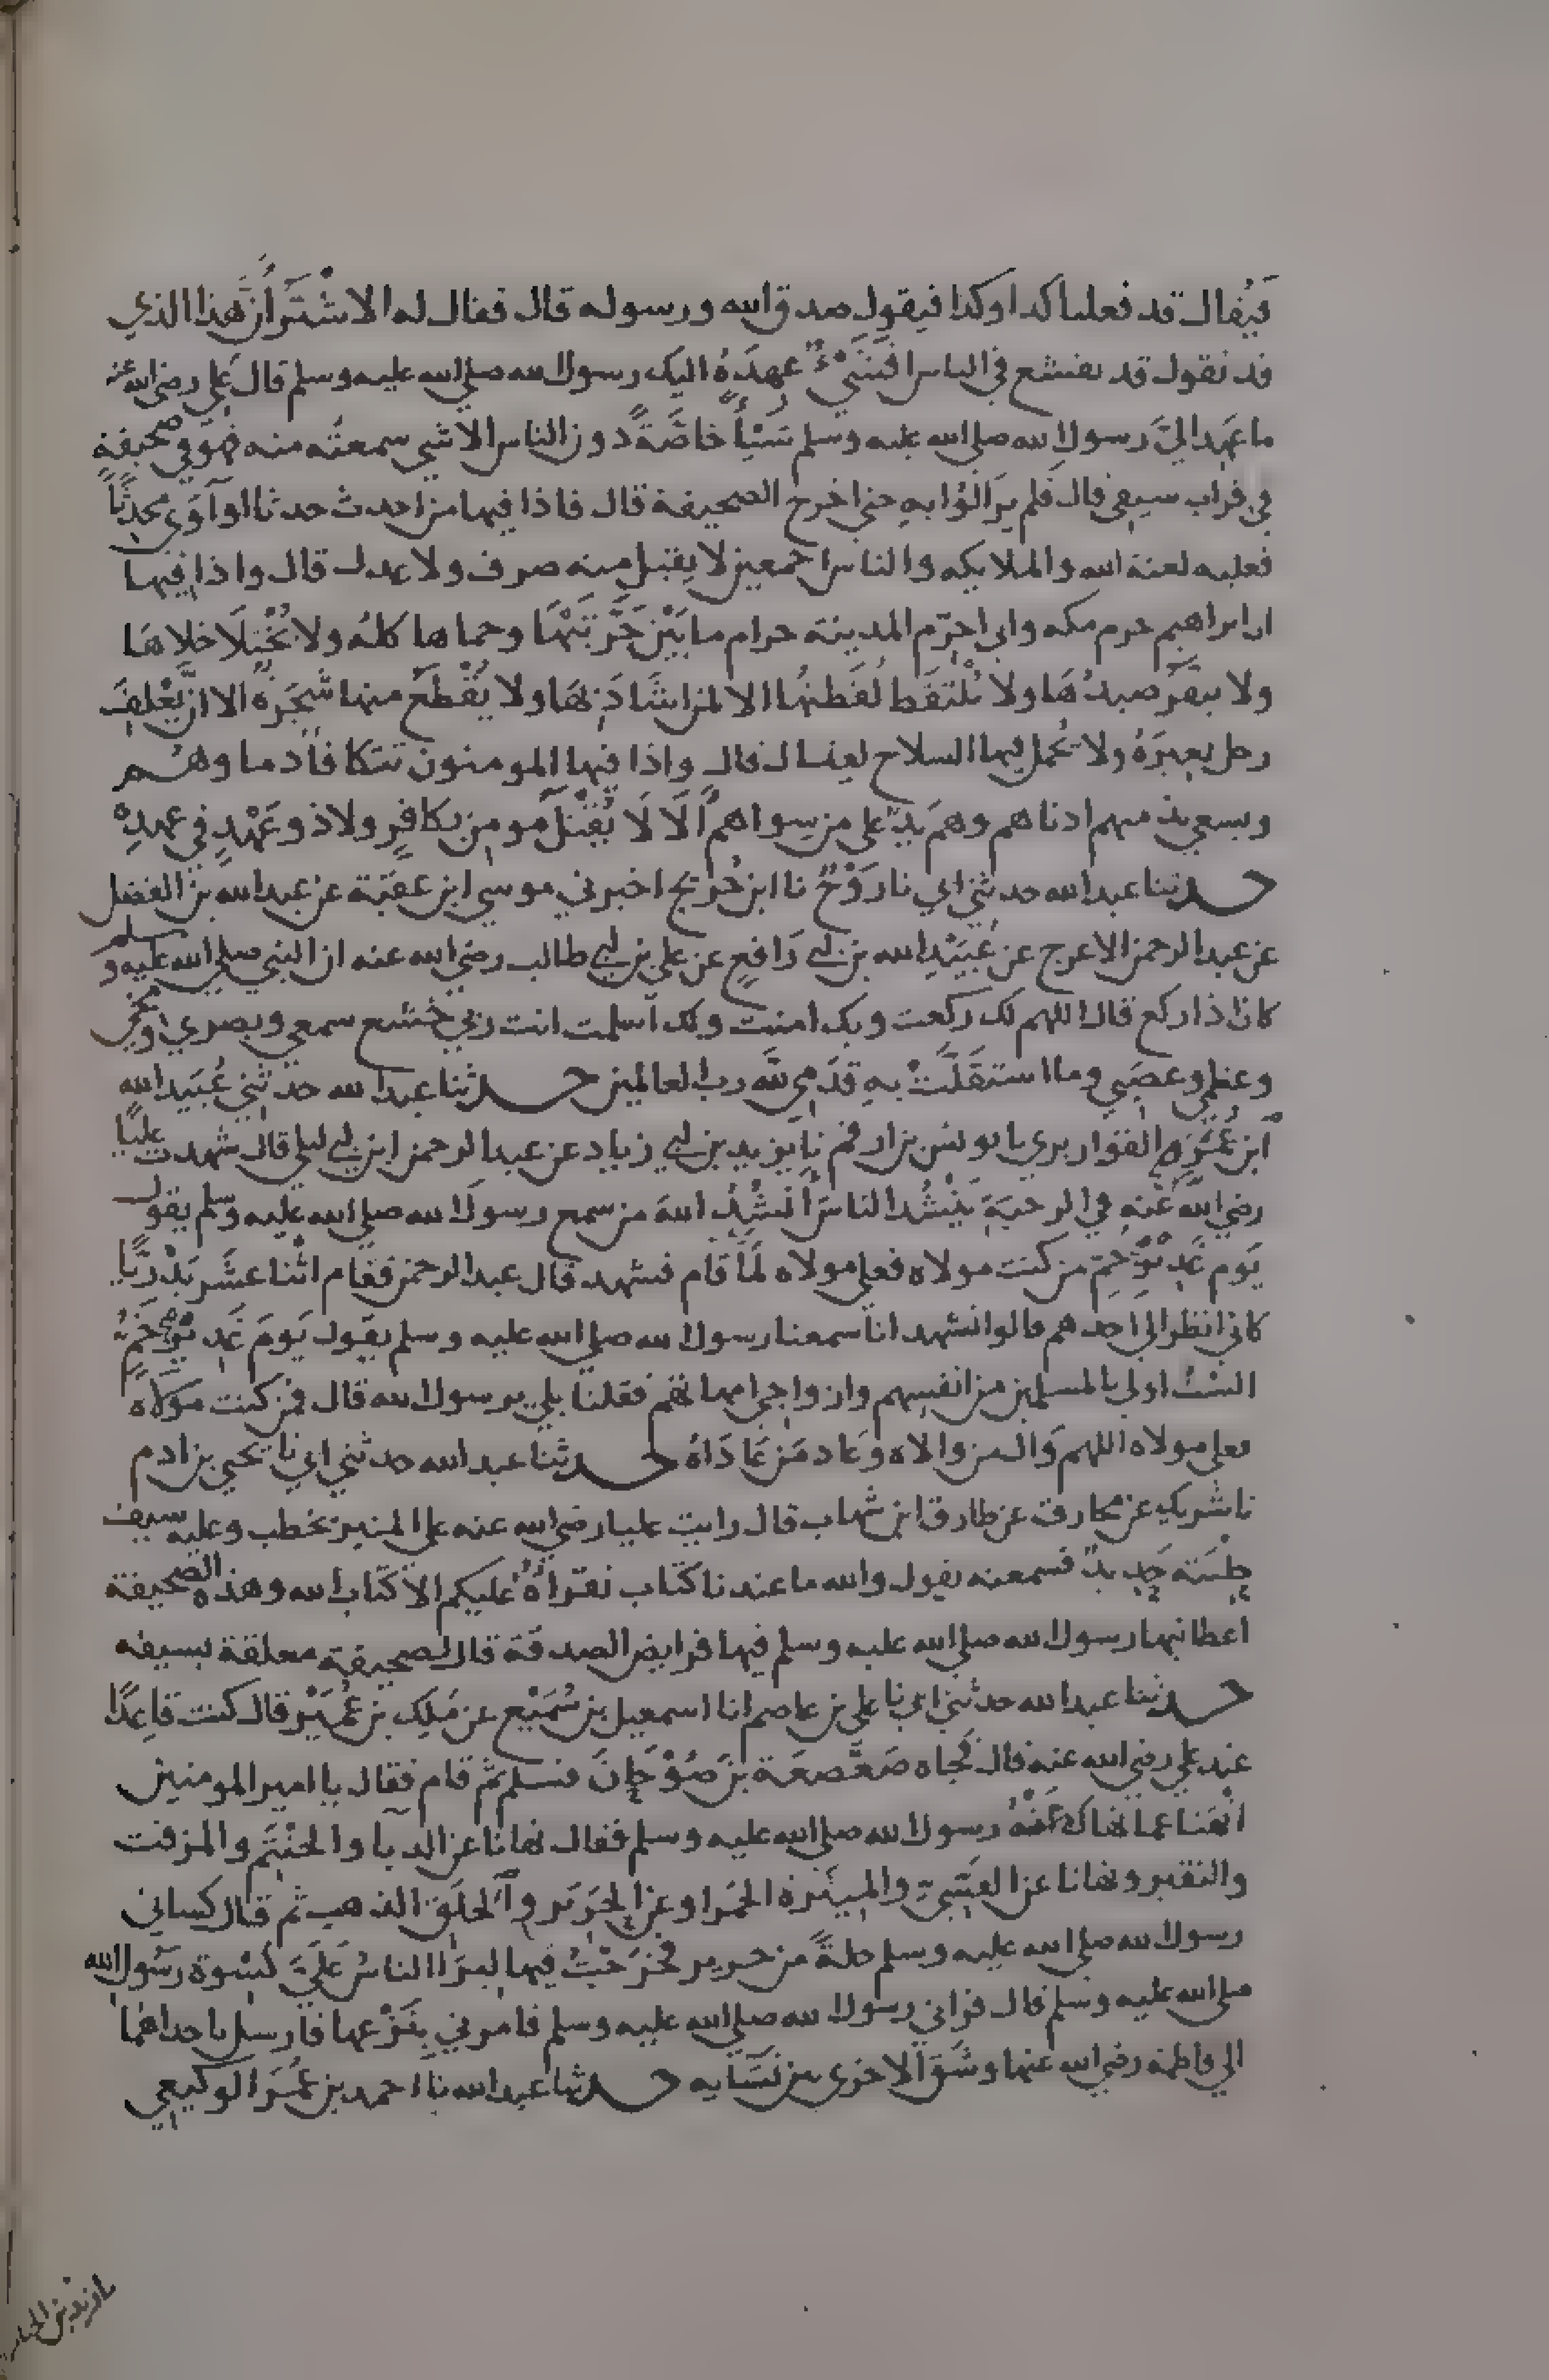 فيقال قد فعلنا كذا وكذا فيقول صدق الله ورسوله قال فقال له الاشتر ان هذا الذي
قد تقول قد تفشع في الناس افشيء عهده اليك رسول الله صلى الله عليه وسلم قال علي رضي الله عنه
ما عهد الي رسول الله صلى الله عليه وسلم شيأ خاصة دون الناس الا شي سمعته منه فهو في صحيفة
في قراب سيفي قال فلم يزالوا به حتى اخرج الصحيفة قال فاذا فيها من احدث حدثا او آوى محدثا
فعليه لعنة الله والملايكه والناس اجمعين لا يقبل منه صرف ولا عدل قال واذا فيها
ان ابراهيم حرم مكه واني احرم المدينة حرام ما بين حرتيها وحماها كله ولا يختلا خلاها
ولا ينفر صيدها ولا تلتقط لقطتها الا لمن اشاد بها ولا يقطع منها شجرة الا ان يعلف
رجل بعيره ولا يحمل فيها السلاح لقتال قال واذا فيها المومنون تتكافأ دماوهم
ويسعى بذمتهم ادناهم وهم يد على من سواهم الا لا يقتل مومن بكافر ولا ذو عهد في عهده
حدثنا عبد الله حدثني ابي نا روح نا ابن جريج اخبرني موسى ابن عقبة عن عبد الله بن الفضل
عن عبد الرحمن الاعرج عن عبيد الله بن ابي رافع عن علي بن ابي طالب رضي الله عنه ان النبي صلى الله عليه وسلم
كان اذا ركع قال اللهم لك ركعت وبك امنت ولك اسلمت انت ربي خشع سمعي وبصري ومخي
وعظمي وعصبي وما استقلت به قدمي لله رب العالمين حدثنا عبد الله حدثني عبيد الله
ابن عمر القواريري نا يونس بن ارقم نا يزيد بن ابي زياد عن عبد الرحمن ابن ابي ليلى قال شهدت عليا
رضي الله عنه في الرحبة ينشد الناس انشد الله من سمع رسول الله صلى الله عليه وسلم يقول
يوم غدير خم من كنت مولاه فعلي مولاه لما قام فشهد قال عبد الرحمن فقام اثنا عشر بدريا
كاني انظر الى احدهم قالوا نشهد انا سمعنا رسول الله صلى الله عليه وسلم يقول يوم غدير خم
الست اولى بالمسلمين من انفسهم وازواجي امهاتهم فقلنا بلى يرسول الله قال فمن كنت مولاه
فعلي مولاه اللهم وال من والاه وعاد من عاداه حدثنا عبد الله حدثني ابي نا يحيى بن ادم
نا شريك عن مخارق عن طارق ابن شهاب قال رايت عليا رضي الله عنه على المنبر يخطب وعليه سيف
حليته حديد فسمعته يقول والله ما عندنا كتاب نقرأه عليكم الا كتاب الله وهذه الصحيفة
اعطانيها رسول الله صلى الله عليه وسلم فيها فرايض الصدقة قال لصحيفة معلقة بسيفه
حدثنا عبد الله حدثني ابي نا علي بن عاصم انا اسمعيل بن سميع عن ملك بن عمير قال كنت قاعدا
عند علي رضي الله عنه قال فجاه صعصعة بن صوحان فسلم ثم قام فقال يا امير المومنين
انهنا عما نهاك عنه رسول الله صلى الله عليه وسلم فقال نهانا عن الدبا والحنتم والمزفت
والنقير ونهانا عن القسي والميثرة الحمرا وعن الحرير والحلق الذهب ثم قال كساني
رسول الله صلى الله عليه وسلم حلة من حرير فخرجت فيها ليرا الناس علي كسوة رسول الله
صلى الله عليه وسلم قال فراني رسول الله صلى الله عليه وسلم فامرني بنزعها فارسل باحداهما
الى فاطمه رضي الله عنها وشق الاخرى بين نسايه حدثنا عبد الله نا احمد بن عمر الوكيعي